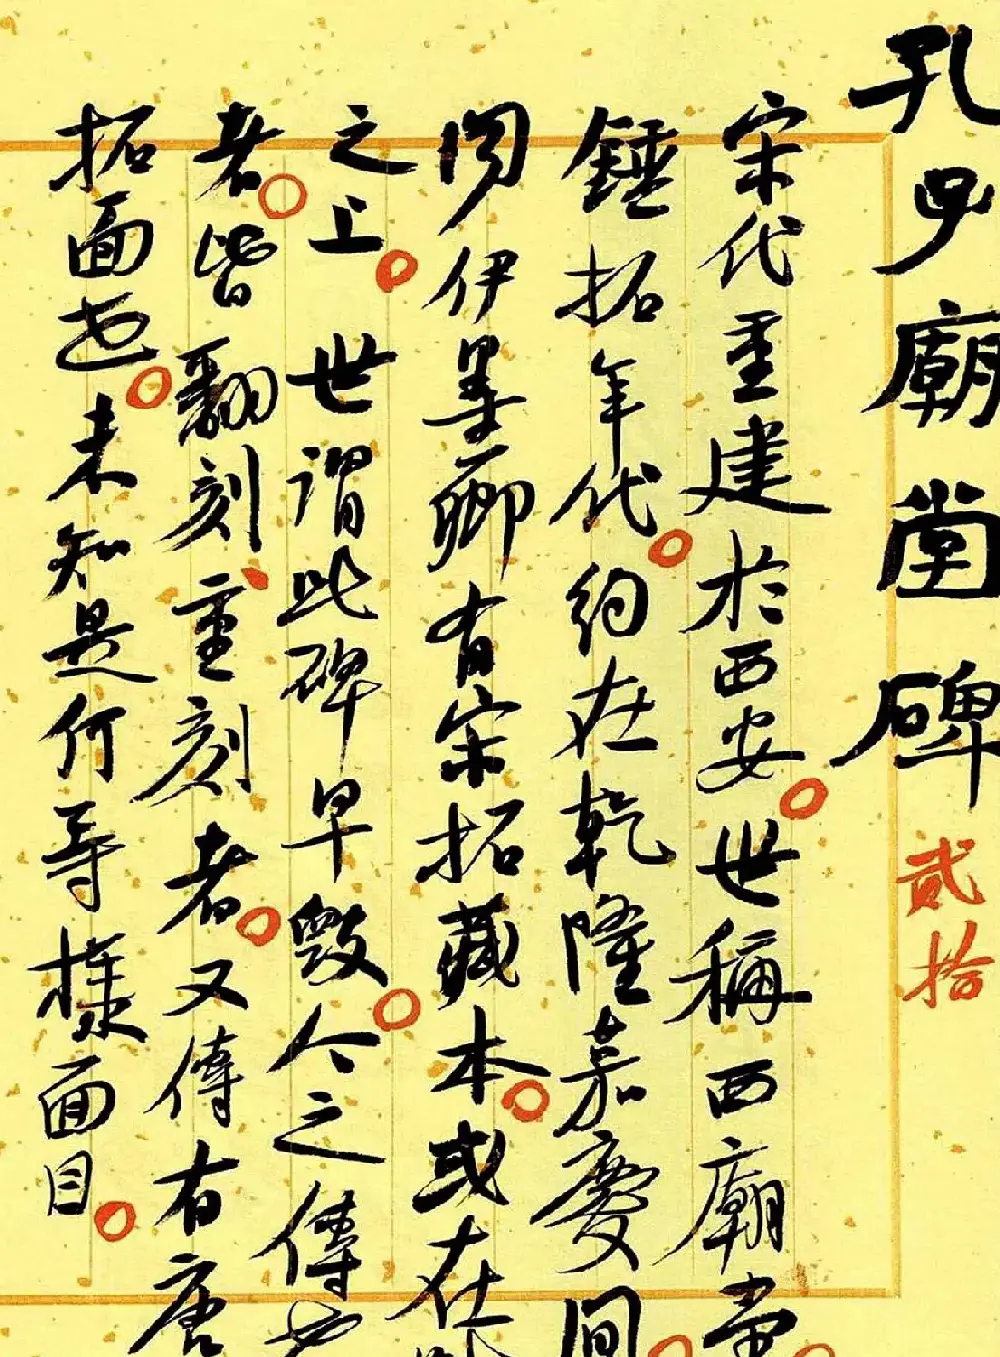 孔子廟堂碑
貳拾
宋代重建於西安世稱西廟堂
錘拓年代約在乾隆嘉慶間
閱伊墨卿有宋拓藏本或在
之上世謂此碑早毀今之傳世
者皆翻刻重刻者又傳有唐
拓面世未知是何等樣面目